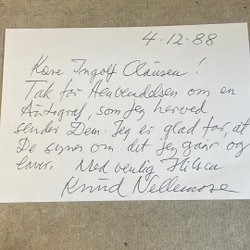 4.12.88
Kære Ingolf Clausen!
Tak for Henvendelsen om en
Autograf, som jeg herved
sender Dem. Jeg er glad for, at
De synes om det jeg gør og
laver. Med venlig Hilsen
Knud Nellemose